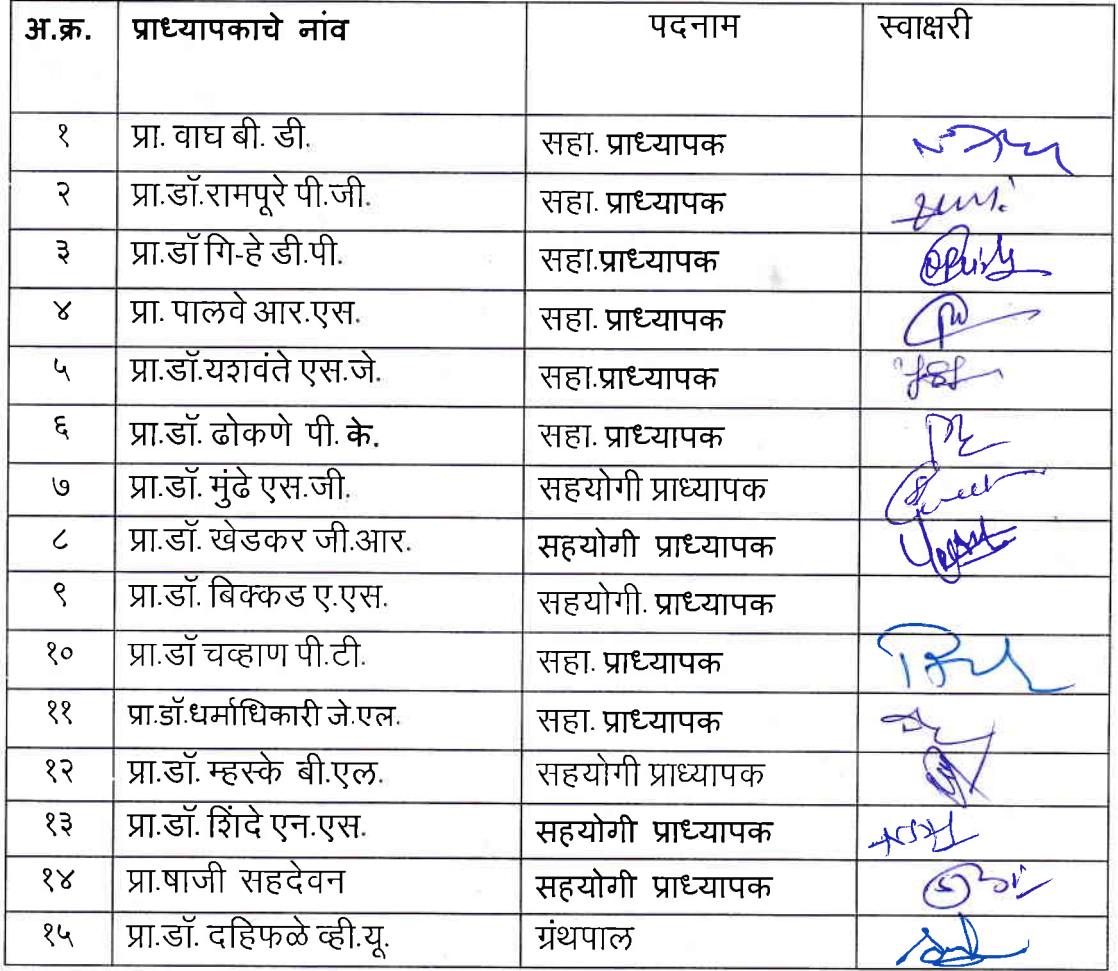 अ.क्र. प्राध्यापकाचे नांव पदनाम स्वाक्षरी
१ प्रा. वाघ बी. डी. सहा. प्राध्यापक
२ प्रा.डॉ.रामपूरे पी.जी. सहा. प्राध्यापक
३ प्रा.डॉ गि-हे डी.पी. सहा.प्राध्यापक
४ प्रा. पालवे आर.एस. सहा. प्राध्यापक
५ प्रा.डॉ.यशवंते एस.जे. सहा.प्राध्यापक
६ प्रा.डॉ. ढोकणे पी. के. सहा. प्राध्यापक
७ प्रा.डॉ. मुंढे एस.जी. सहयोगी प्राध्यापक
८ प्रा.डॉ. खेडकर जी.आर. सहयोगी प्राध्यापक
९ प्रा.डॉ. बिक्कड ए.एस. सहयोगी. प्राध्यापक
१० प्रा.डॉ चव्हाण पी.टी. सहा. प्राध्यापक
११ प्रा.डॉ.धर्माधिकारी जे.एल. सहा. प्राध्यापक
१२ प्रा.डॉ. म्हस्के बी.एल. सहयोगी प्राध्यापक
१३ प्रा.डॉ. शिंदे एन.एस. सहयोगी प्राध्यापक
१४ प्रा.षाजी सहदेवन सहयोगी प्राध्यापक
१५ प्रा.डॉ. दहिफळे व्ही.यू. ग्रंथपाल